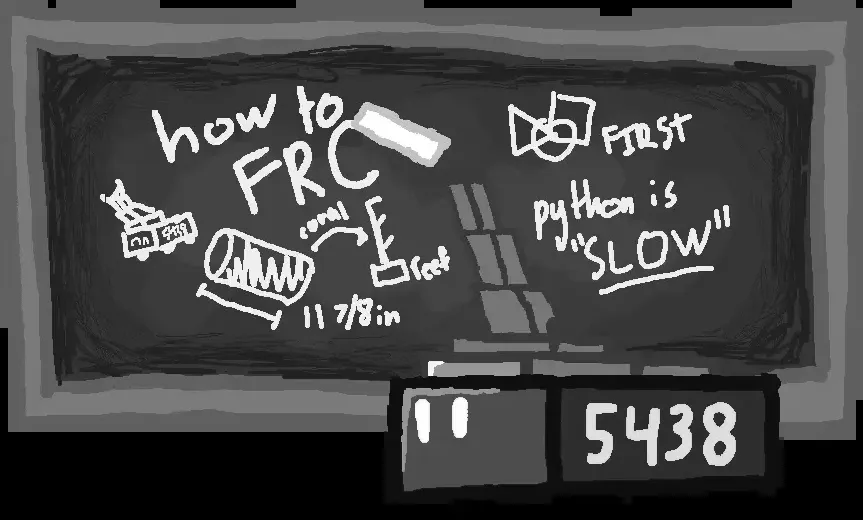 how to
FRC
FIRST
python is
"SLOW"
coral
reef
11 7/8 in
5438